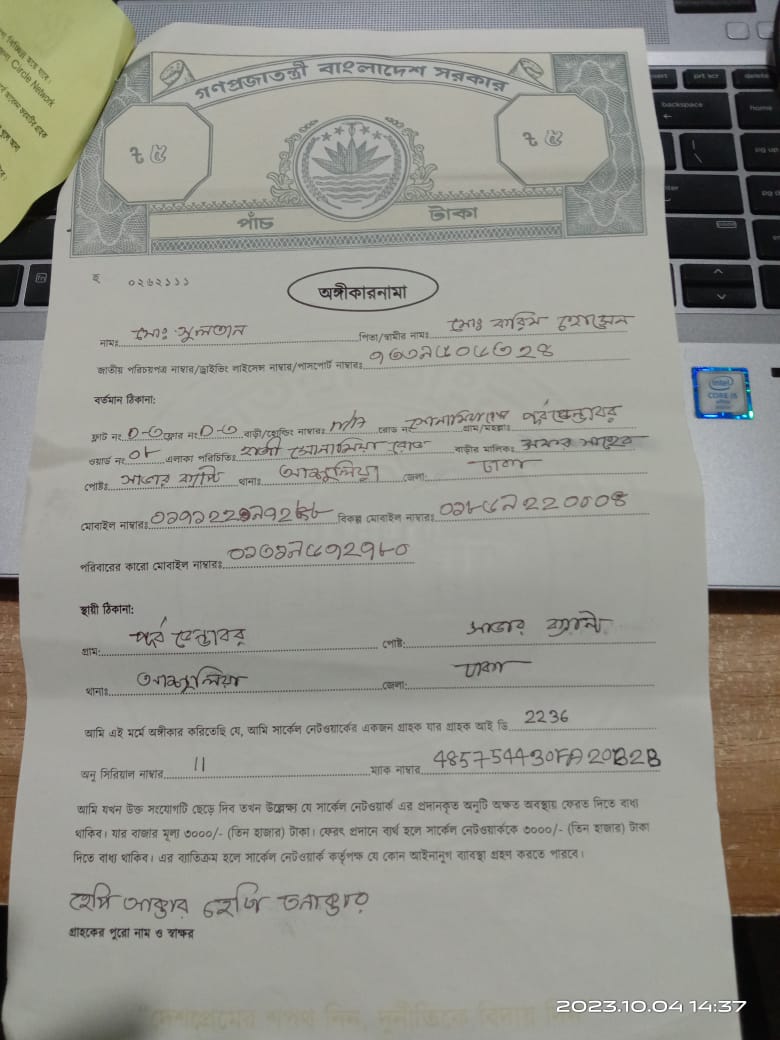 Circle Network
prt scr
delete
backspace
home
pg up
গণপ্রজাতন্ত্রী বাংলাদেশ সরকার
৳ ৫
৳ ৫
পাঁচ টাকা
০২৬২১১১
অঙ্গীকারনামা
নামঃ মোঃ সুলতান পিতা/স্বামীর নামঃ মোঃ বারিম হোসেন
জাতীয় পরিচয়পত্র নাম্বার/ড্রাইভিং লাইসেন্স নাম্বার/পাসপোর্ট নাম্বারঃ
বর্তমান ঠিকানা:
ফ্লাট নং D-৩ ফ্লোর নং D-৩ বাড়ী/হোল্ডিং নাম্বারঃ n/A রোড নং গ্রাম/মহল্লাঃ
ওয়ার্ড নং ০৮ এলাকা পরিচিতিঃ হাজী সোনামিয়া রোড বাড়ীর মালিকঃ
পোষ্টঃ সাভার ক্যান্ট থানাঃ আশুলিয়া জেলা: ঢাকা
মোবাইল নাম্বারঃ বিকল্প মোবাইল নাম্বারঃ
পরিবারের কারো মোবাইল নাম্বারঃ
স্থায়ী ঠিকানা:
গ্রামঃ পোষ্টঃ সাভার ক্যান্ট
থানাঃ আশুলিয়া জেলা: ঢাকা
আমি এই মর্মে অঙ্গীকার করিতেছি যে, আমি সার্কেল নেটওয়ার্কের একজন গ্রাহক যার গ্রাহক আই ডি 2236
অনু সিরিয়াল নাম্বার 11 ম্যাক নাম্বার 485754430FA20B2B
আমি যখন উক্ত সংযোগটি ছেড়ে দিব তখন উল্লেক্ষ্য যে সার্কেল নেটওয়ার্ক এর প্রদানকৃত অনুটি অক্ষত অবস্থায় ফেরত দিতে বাধ্য
থাকিব। যার বাজার মূল্য ৩০০০/- (তিন হাজার) টাকা। ফেরৎ প্রদানে ব্যর্থ হলে সার্কেল নেটওয়ার্ককে ৩০০০/- (তিন হাজার) টাকা
দিতে বাধ্য থাকিব। এর ব্যতিক্রম হলে সার্কেল নেটওয়ার্ক কর্তৃপক্ষ যে কোন আইনানুগ ব্যাবস্থা গ্রহণ করতে পারবে।
হেপি আক্তার
গ্রাহকের পুরো নাম ও স্বাক্ষর
intel
CORE i5
দেশপ্রেমের শপথ নিন, দুর্নীতিকে বিদায় দিন
2023.10.04 14:37